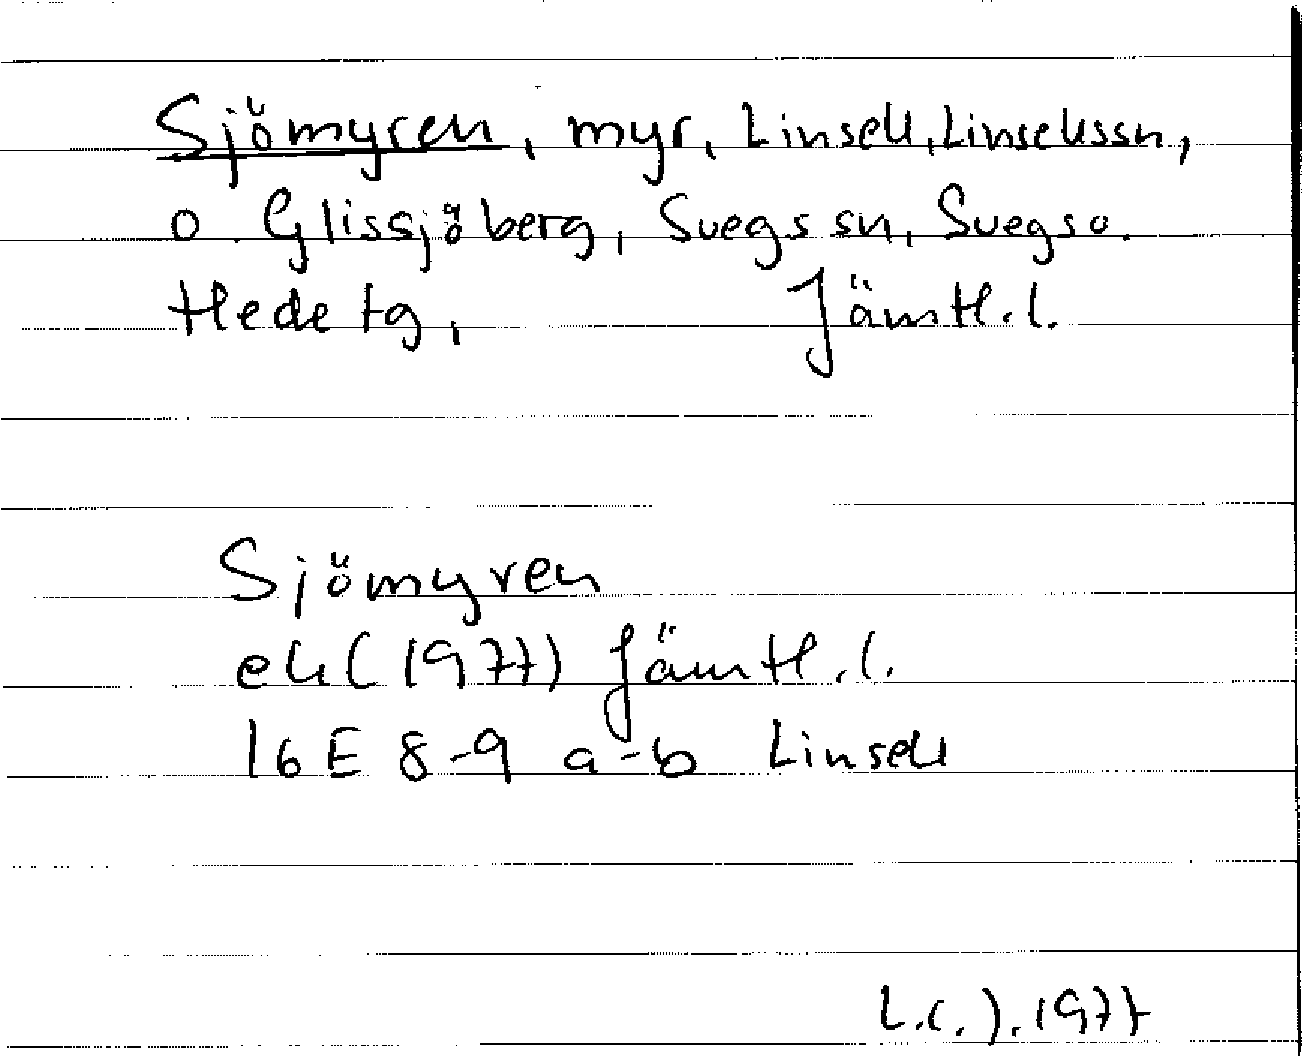 Sjömyren, myr, Linsell, Linsellssn,
o Glissjöberg, Svegs sn, Svegs o.
Hede tg, Jämtl. l.
Sjömyren
ek (1977) Jämtl. l.
16 E 8-9 a-b Linsell
1977